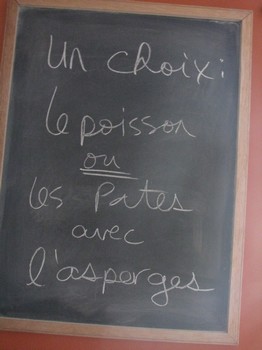 Un choix:
le poisson
ou
les Pates
avec
l'asperges